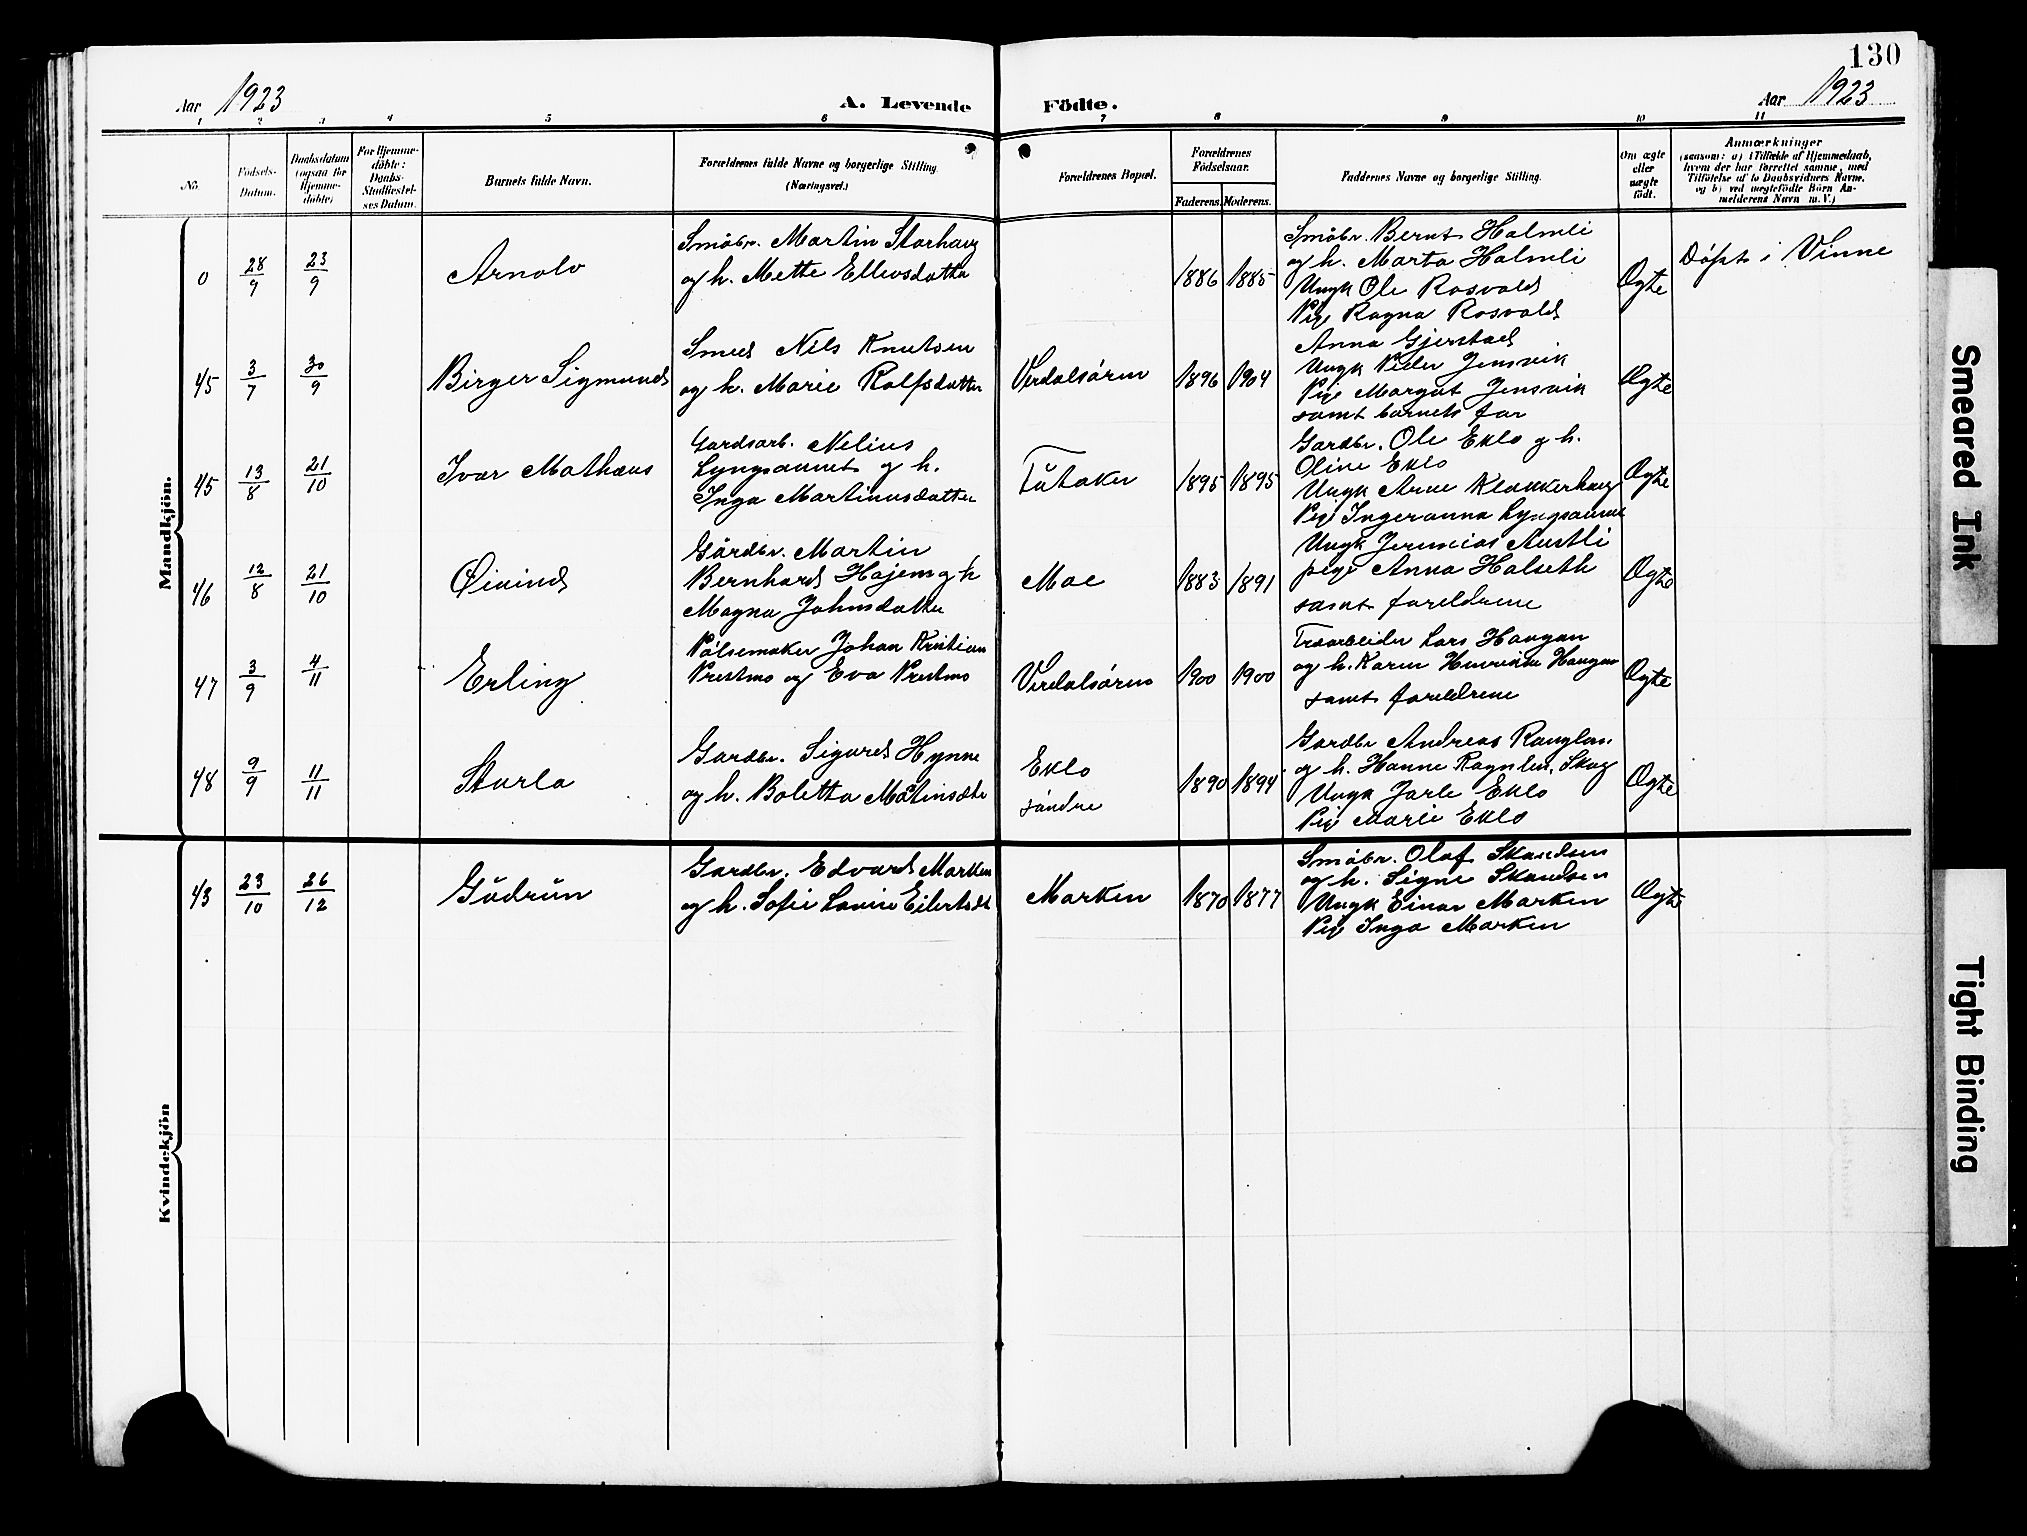 130
Aar 1923
A. Levende
Födte.
Aar 1923
1 2 3 4 5 6 7 8 9 10 11
No.
Födsels-
Datum.
Daabsdatum
(ogsaa for
Hjemme-
döbte)
For Hjemme-
döbte:
Daabs-
Stadfæstel-
ses Datum.
Barnets fulde Navn.
Forældrenes fulde Navne og borgerlige Stilling
(Næringsvei.)
Forældrenes Bopæl.
Forældrenes
Födselsaar.
Faderens. Moderens.
Faddernes Navne og borgerlige Stilling.
Om ægte
eller
uægte
födt.
Anmærkninger
(saasom: a) i Tilfælde af Hjemmedaab,
hvem der har forrettet samme, med
Tilföielse af to Daabsvidners Navne,
og b) ved uægtefödte Börn An-
melderens Navn m. V.)
Mandkjön.
0
28/9
23/9
Arnolv
Småbr. Martin Storhaug
og h. Mette Ellevsdatter
1886
1885
Småbr. Bernt Holmli
og h. Marta Holmli
Ungk Ole Rosvold
Pige Ragna Rosvold
Ægte
Døpt i Vinne
45
3/7
30/9
Birger Sigmund
Smed Nils Knutsen
og h. Marie Rolfsdatter
Verdalsøren
1896
1904
Anna Gjerstad
Ungk Peder Jensvik
Pige Margot Jensvik
samt barnets far
Ægte
45
13/8
21/10
Ivar Mathæus
Gardsarb. Nelius
Lyngsaunet og h.
Inga Martinusdatter
Tåtaker
1895
1895
Gardbr. Ole Eklo og h.
Oline Eklo
Ungk Arne Klokkerhaug
Pige Ingeranna Lyngsaunet
Ægte
46
12/8
21/10
Øivind
Gårdbr. Martin
Bernhard Hojem og h
Magna Johnsdatter
Moe
1883
1891
Ungk Jeremias Austli
pige Anna Halseth
samt foreldrene
Ægte
47
3/9
4/11
Erling
Pølsemaker Johan Kristian
Prestmo og Eva Prestmo
Verdalsøren
1900
1900
Træarbeider Lars Haugan
og h. Karen Henrikke Haugan
samt foreldrene
Ægte
48
9/9
11/11
Sturla
Gardbr. Sigurd Hynne
og h. Boletta
Eklo
søndre
1890
1894
Gardbr Andreas
og h. Hanne Skog
Ungk Jarle Eklo
Pige Marie Eklo
Ægte
Kvindekjön
43
23/10
26/12
Gudrun
Gardbr. Edvard Marken
og h. Sofie Lovise Eilertsdt
Marken
1870
1877
Småbr. Olaf Skandsen
og h. Signe Skandsen
Ungk Einar Marken
Pige Inga Marken
Ægte
Smeared Ink
Tight Binding